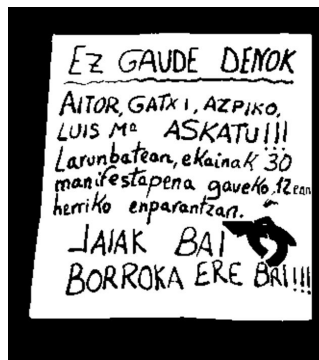 EZ GAUDE DENOK
AITOR, GATXI, AZPIKO,
LUIS Mª ASKATU!!!
Larunbatean, ekainak 30
manifestapena gaueko 12ean
herriko enparantzan.
JAIAK BAI
BORROKA ERE BAI!!!